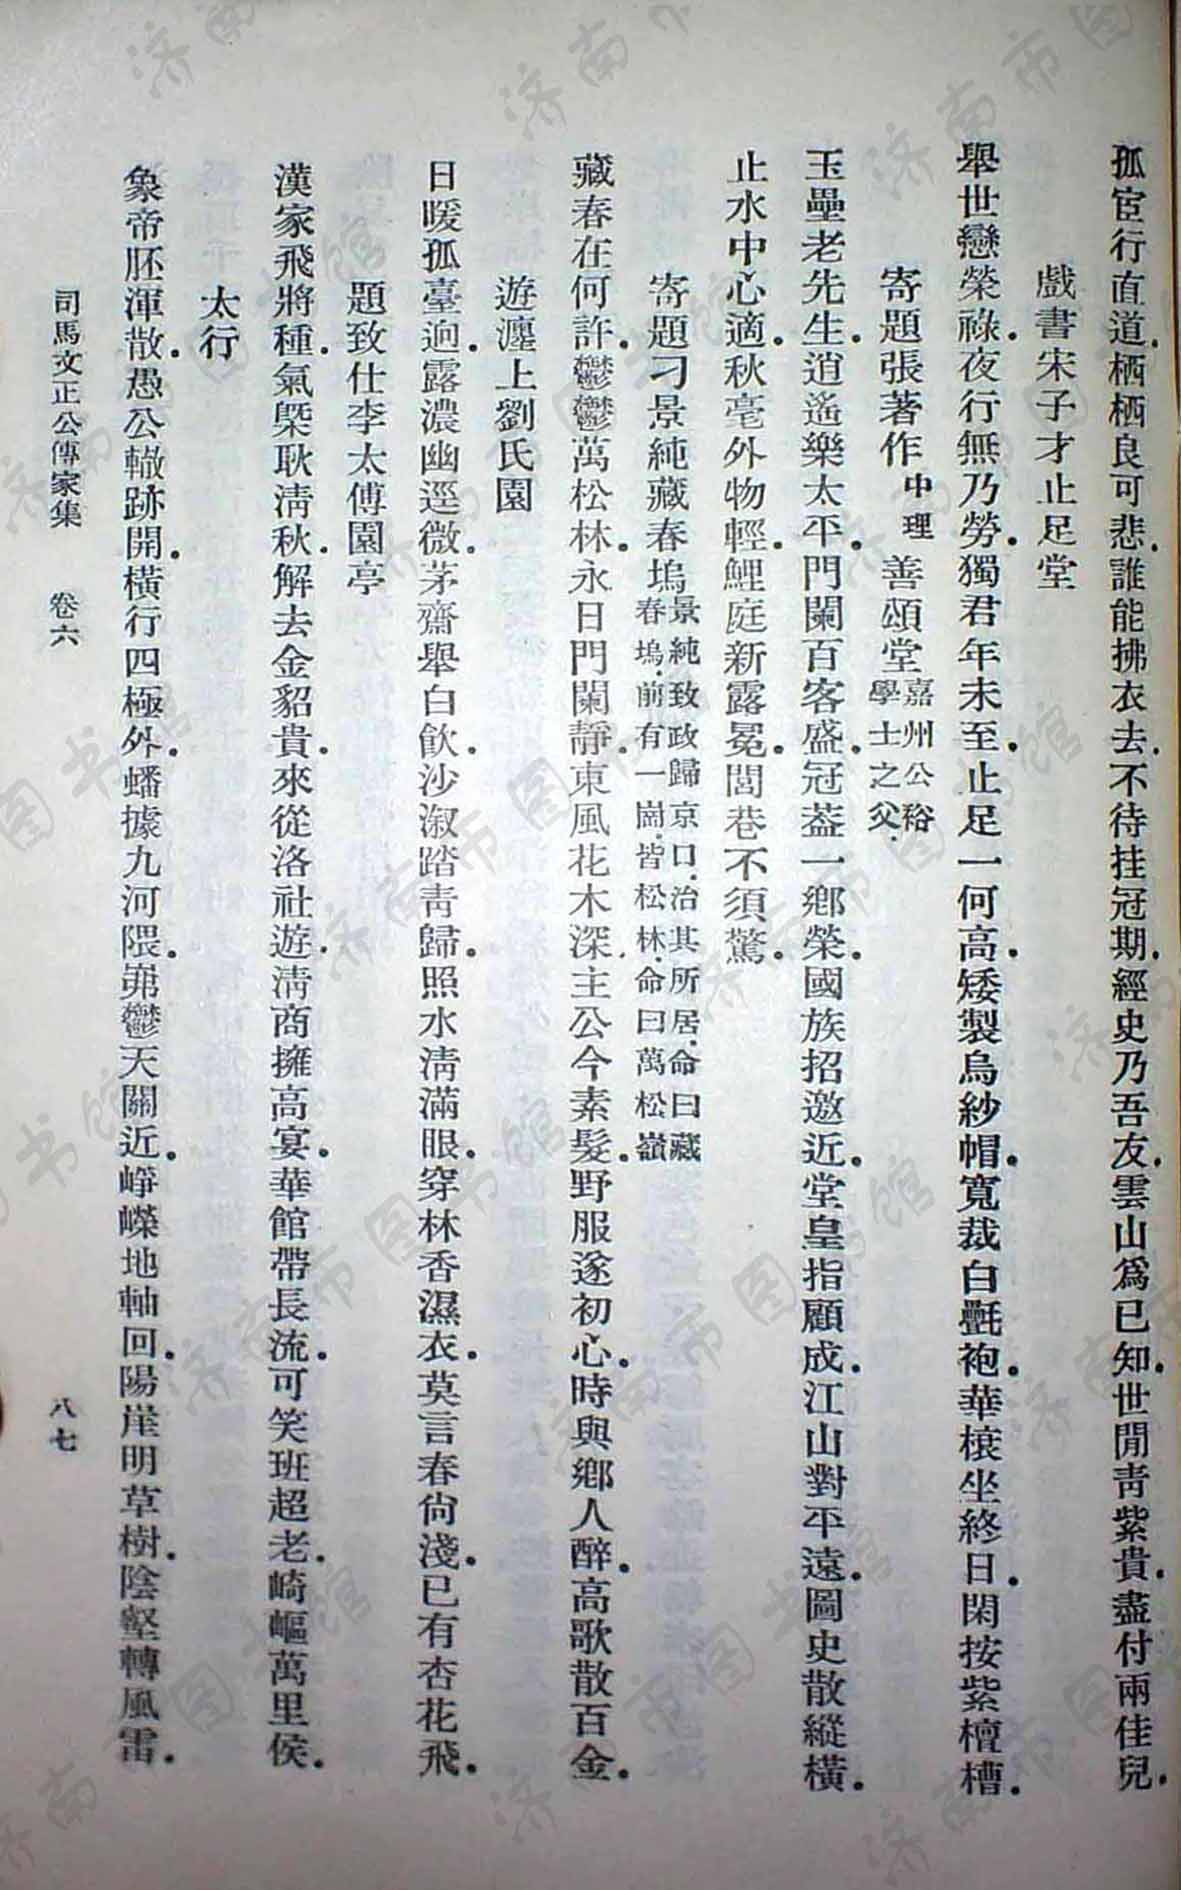 孤宦行直道．栖栖良可悲．誰能拂衣去．不待挂冠期．經史乃吾友．雲山爲已知．世閒靑紫貴．盡付兩佳兒．
戲書宋子才止足堂
舉世戀榮祿．夜行無乃勞．獨君年未至．止足一何高．矮製烏紗帽．寬裁白氎袍．華榱坐終日．閑按紫檀槽．
寄題張著作中理善頌堂嘉州公裕學士之父．
玉壘老先生．逍遙樂太平．門闌百客盛．冠葢一鄉榮．國族招邀近．堂皇指顧成．江山對平遠．圖史散縱橫．
止水中心適．秋毫外物輕．鯉庭新露冕．閭巷不須驚．
寄題刁景純藏春塢景純致政歸京口．治其所居．命曰藏春塢．前有一崗．皆松林．命曰萬松嶺
藏春在何許．鬱鬱萬松林．永日門闌靜．東風花木深．主公今素髮．野服遂初心．時與鄉人醉．高歌散百金．
遊瀍上劉氏園
日暖孤臺逈．露濃幽逕微．茅齋舉白飮．沙溆踏靑歸．照水淸滿眼．穿林香濕衣．莫言春尙淺．已有杏花飛．
題致仕李太傅園亭
漢家飛將種．氣槩耿淸秋．解去金貂貴．來從洛社遊．淸商擁高宴．華館帶長流．可笑班超老．崎嶇萬里侯．
太行
象帝胚渾散．愚公轍跡開．橫行四極外．蟠據九河隈．岪鬱天關近．崢嶸地軸回．陽崖明草樹．陰壑轉風雷．
司馬文正公傳家集　卷六　八七
济南市图书馆